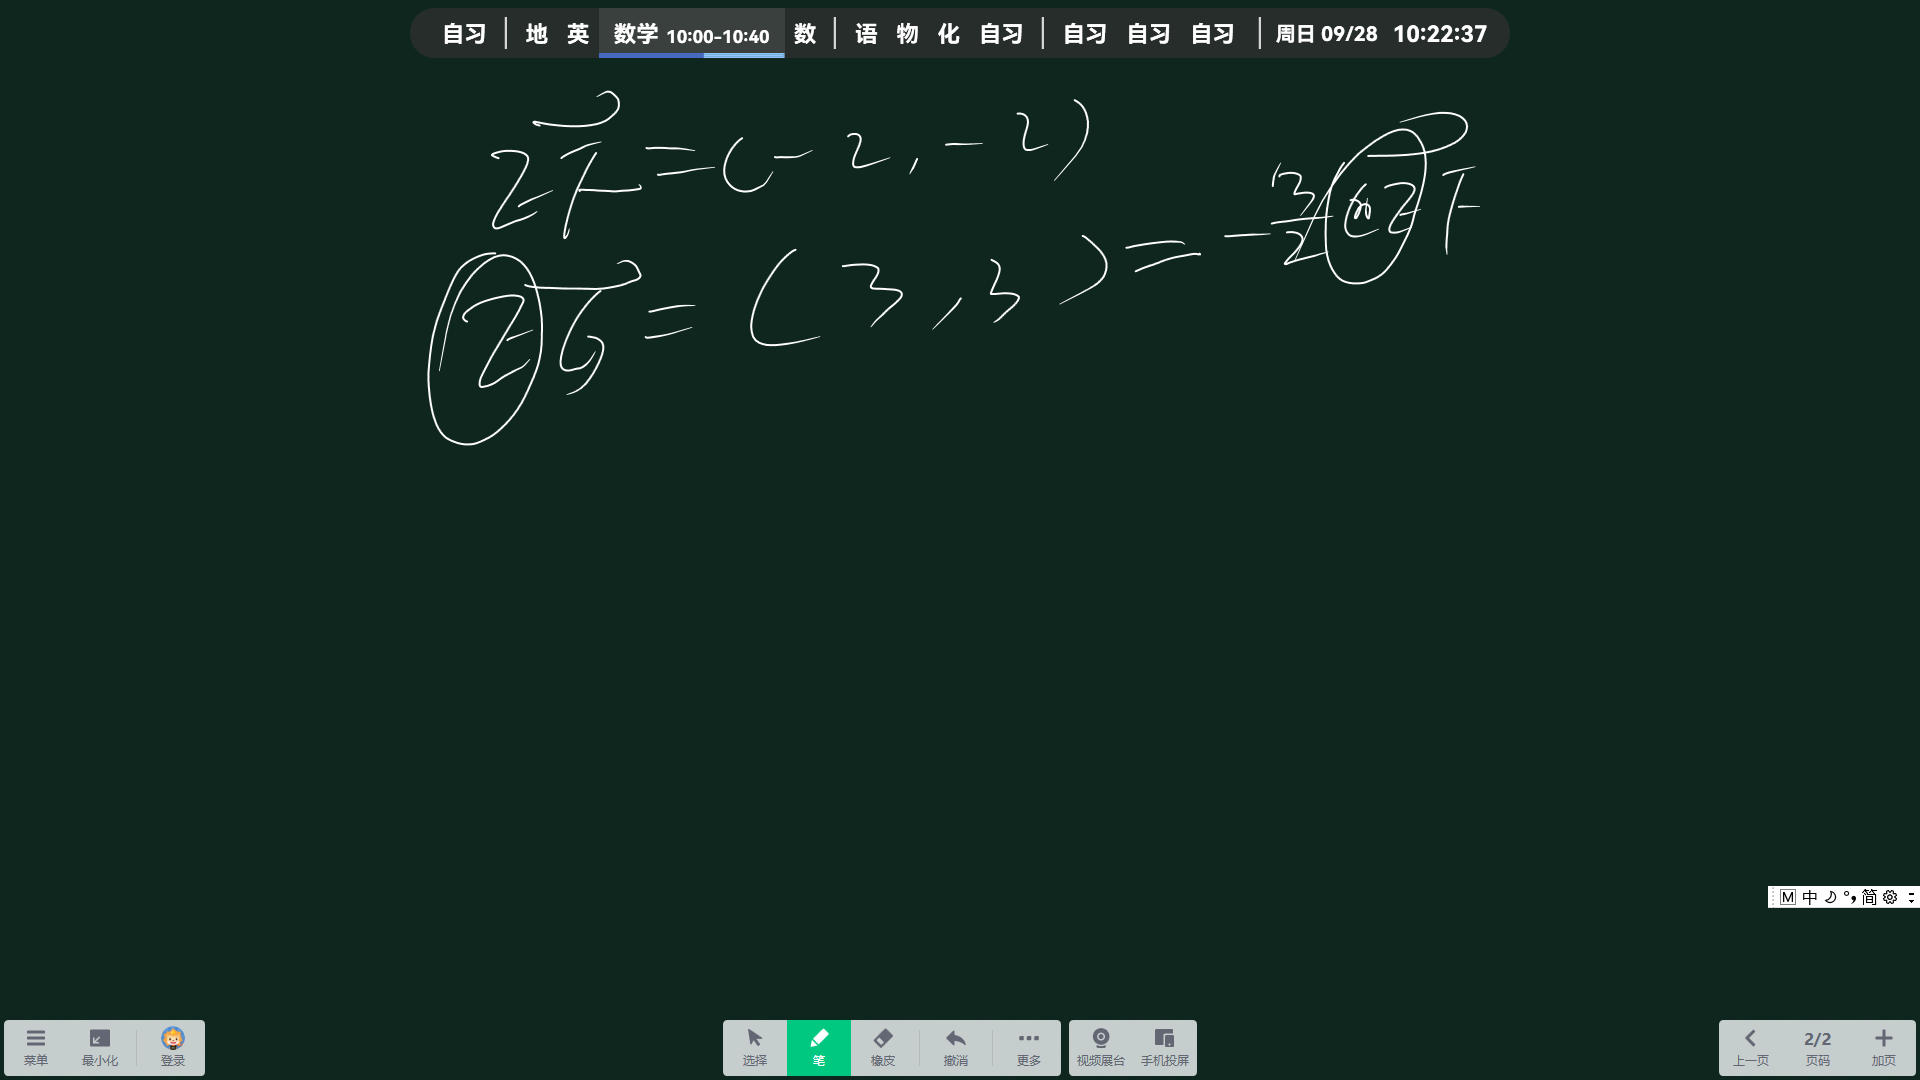 自习 | 地 英 数学 10:00-10:40 数 | 语 物 化 自习 | 自习 自习 自习 | 周日 09/28 10:22:37
EF=(-2,-2)
EG=(3,3)=-3/2 EF
M 中 简
菜单 最小化 登录 选择 笔 橡皮 撤消 更多 视频展台 手机投屏 上一页 2/2 页码 加页